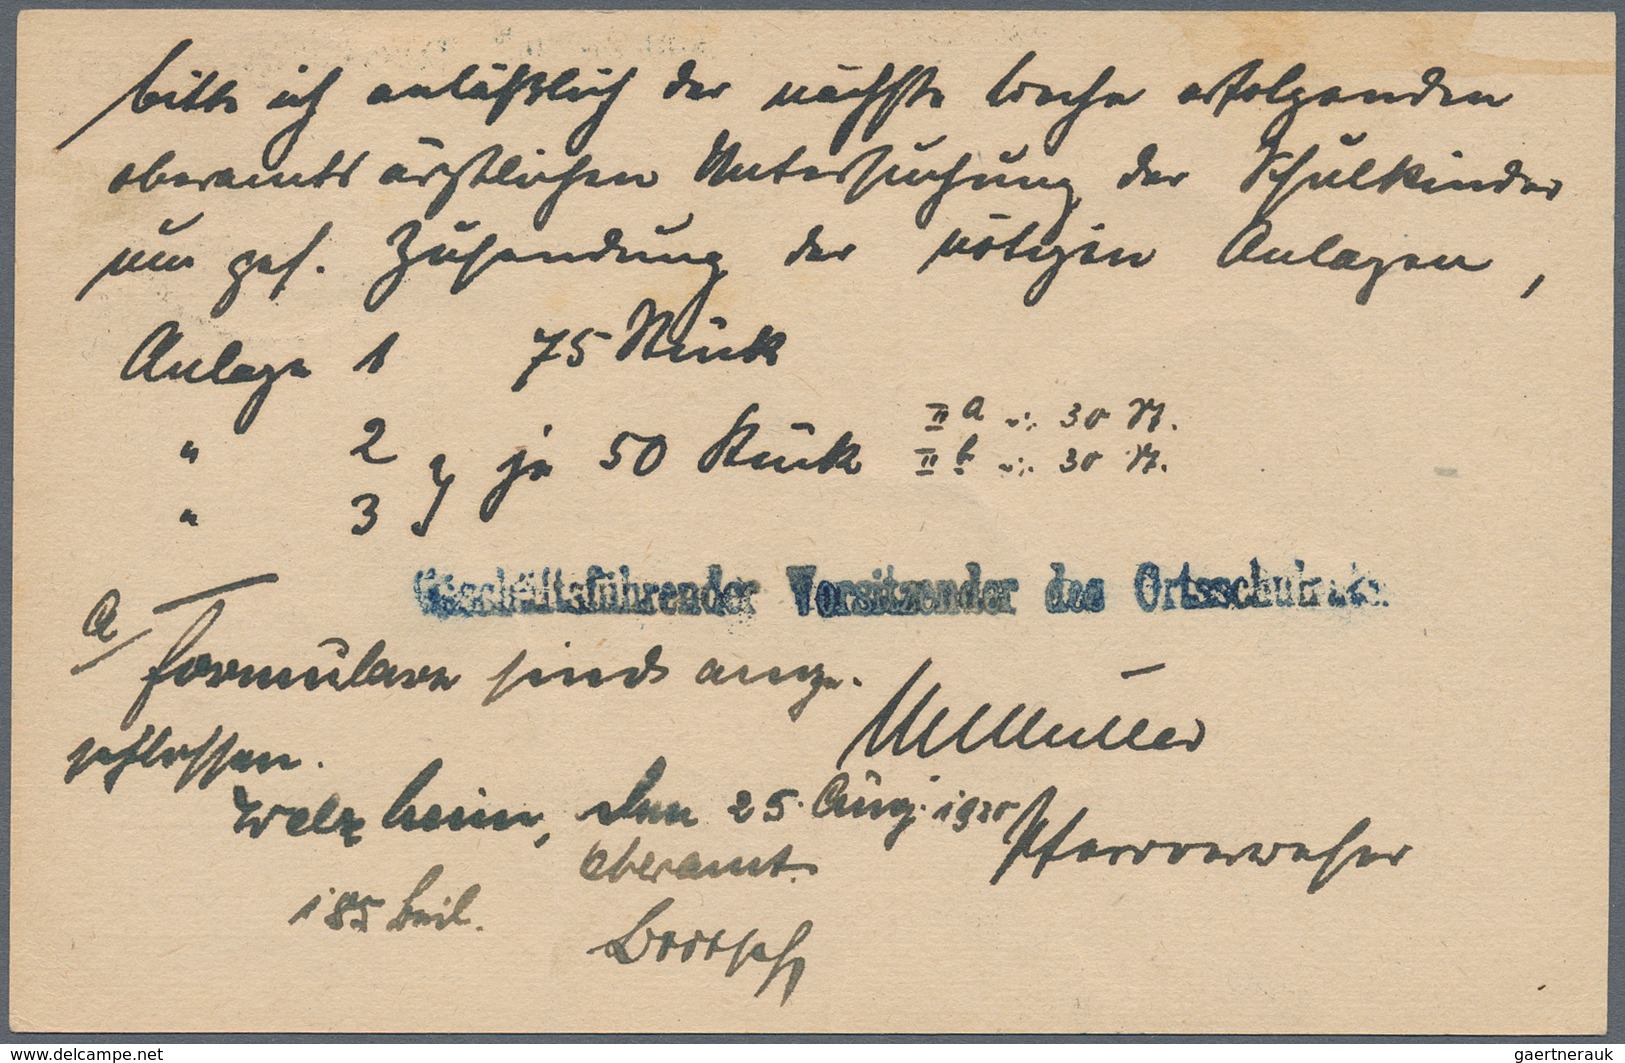 bitte ich anläßlich der nächste Woche erfolgenden
oberamtsärztlichen Untersuchung der Schulkinder
um gef. Zusendung der nötigen Anlagen,
Anlage 1 75 Stück
" 2 } je 50 Stück IIa 30 St.
" 3 IIb 30 St.
Geschäftsführender Vorsitzender des Ortsschulrats.
Formulare sind ange-
schlossen.
Müller
Welzheim, den 25. Aug. 1920
Pfarrverweser
Oberamt.
185 Beil.
www.delcampe.net
gaertnerauk